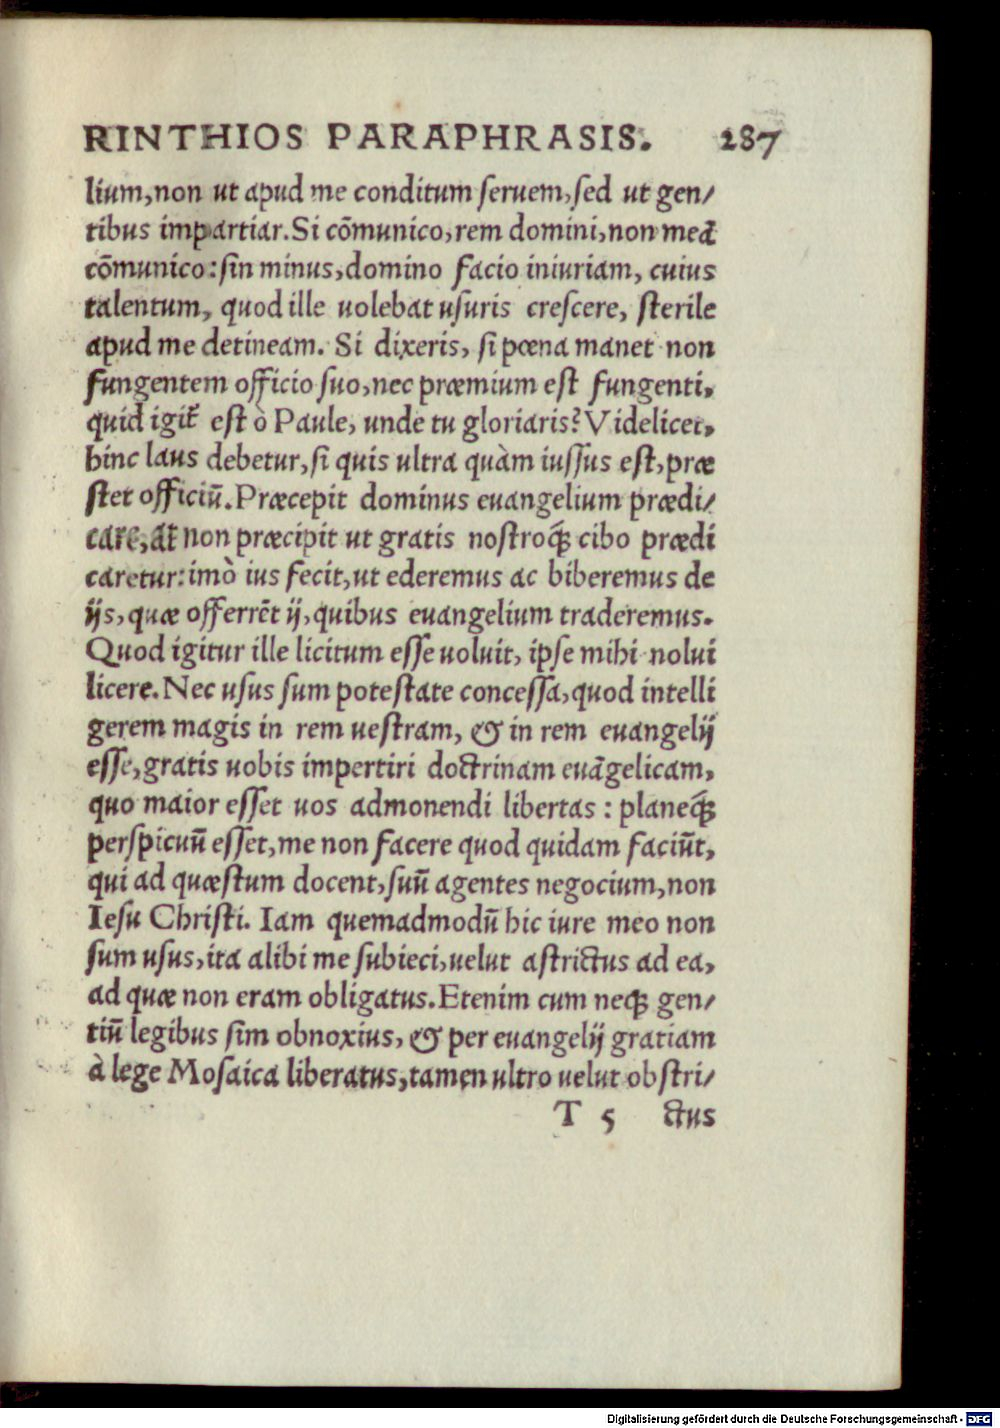 RINTHIOS PARAPHRASIS. 287
lium, non ut apud me conditum ſeruem, ſed ut gen/
tibus impartiar. Si cõmunico, rem domini, non meã
cõmunico: ſin minus, domino facio iniuriam, cuius
talentum, quod ille uolebat uſuris creſcere, ſterile
apud me detineam. Si dixeris, ſi pœna manet non
fungentem officio ſuo, nec præmium eſt fungenti,
quid igit̃ eſt ò Paule, unde tu gloriaris? Videlicet,
hinc laus debetur, ſi quis ultra quàm iuſſus eſt, præ
ſtet officiũ. Præcepit dominus euangelium prædi/
care, at non præcipit ut gratis noſtroq̃ʒ cibo prædi
caretur: imò ius fecit, ut ederemus ac biberemus de
ijs, quæ offerrẽt ij, quibus euangelium traderemus.
Quod igitur ille licitum eſſe uoluit, ipſe mihi nolui
licere. Nec uſus ſum poteſtate conceſſa, quod intelli
gerem magis in rem ueſtram, & in rem euangelij
eſſe, gratis uobis impertiri doctrinam euãgelicam,
quo maior eſſet uos admonendi libertas: planeq̃ʒ
perſpicuũ eſſet, me non facere quod quidam faciũt,
qui ad quæſtum docent, ſuũ agentes negocium, non
Ieſu Chriſti. Iam quemadmodũ hic iure meo non
ſum uſus, ita alibi me ſubieci, uelut aſtrictus ad ea,
ad quæ non eram obligatus. Etenim cum neqʒ gen/
tiũ legibus ſim obnoxius, & per euangelij gratiam
à lege Moſaica liberatus, tamen ultro uelut obſtri/
T 5 ctus
Digitalisierung gefördert durch die Deutsche Forschungsgemeinschaft - DFG